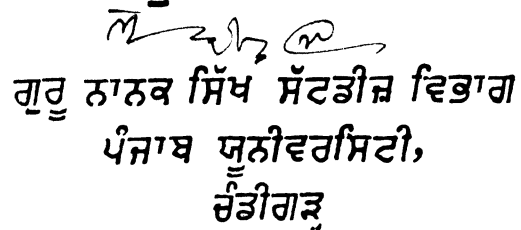 ਗੁਰੂ ਨਾਨਕ ਸਿੱਖ ਸੱਟਡੀਜ਼ ਵਿਭਾਗ
ਪੰਜਾਬ ਯੂਨੀਵਰਸਿਟੀ,
ਚੰਡੀਗੜ੍ਹ